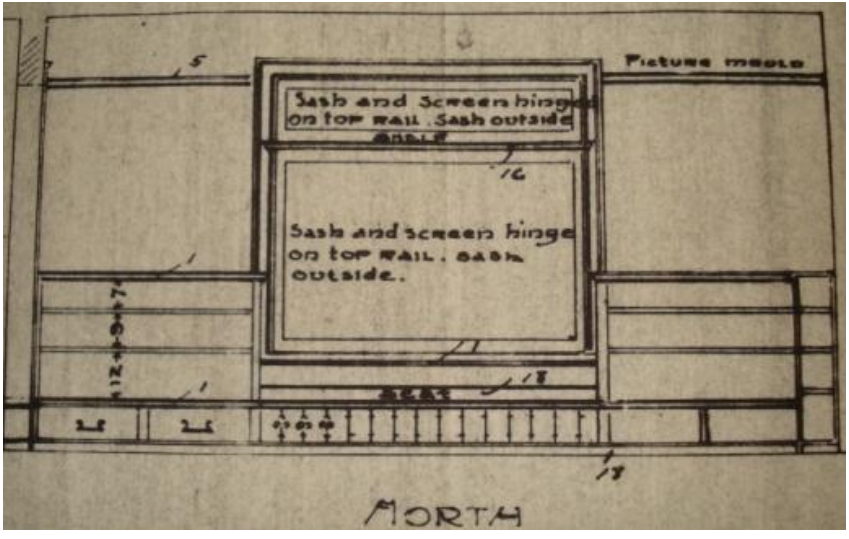 5
Picture mould
Sash and screen hinged
on top rail. Sash outside
16
Sash and screen hinge
on top rail. Sash
outside.
1
1
18
Seat
1
18
North